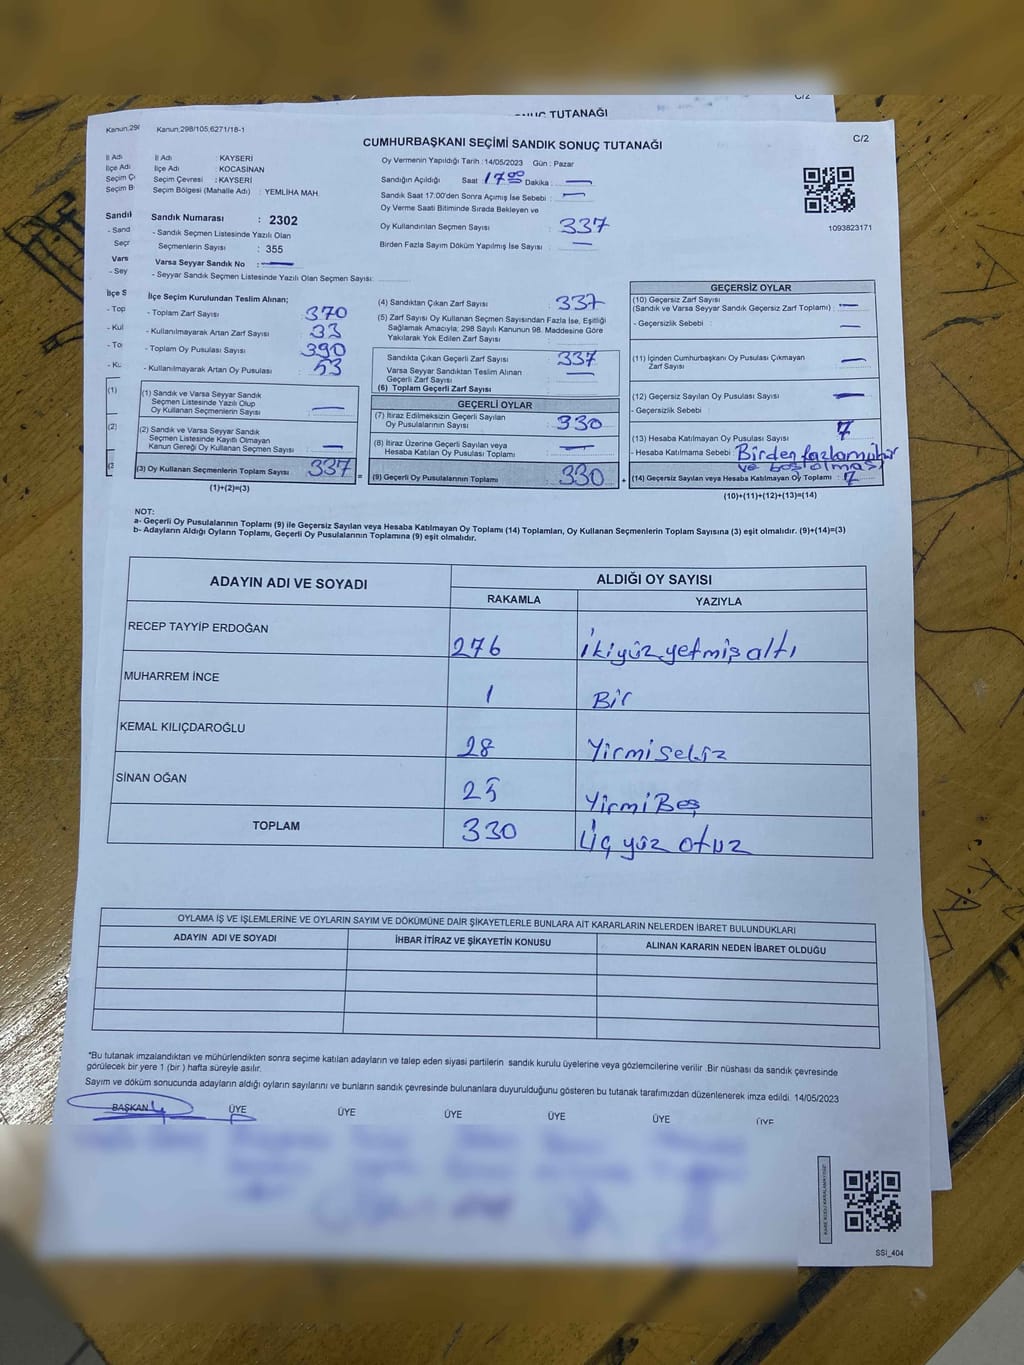 C/2
NUÇ TUTANAĞI
Kanun,298/105,6271/18-1
CUMHURBAŞKANI SEÇİMİ SANDIK SONUÇ TUTANAĞI
C/2
İl Adı KAYSERİ
İlçe Adı : KOCASİNAN
Seçim Çevresi : KAYSERİ
Seçim Bölgesi (Mahalle Adı) : YEMLİHA MAH.
Oy Vermenin Yapıldığı Tarih : 14/05/2023 Gün : Pazar
Sandığın Açıldığı Saat 17 00 Dakika : —
Sandık Saat 17:00'den Sonra Açımış İse Sebebi : —
Oy Verme Saati Bitiminde Sırada Bekleyen ve
Oy Kullandırılan Seçmen Sayısı : 337
Birden Fazla Sayım Döküm Yapılmış İse Sayısı : —
1093823171
Sandık Numarası : 2302
- Sandık Seçmen Listesinde Yazılı Olan
Seçmenlerin Sayısı : 355
Varsa Seyyar Sandık No : —
- Seyyar Sandık Seçmen Listesinde Yazılı Olan Seçmen Sayısı:
İlçe Seçim Kurulundan Teslim Alınan;
- Toplam Zarf Sayısı : 370
- Kullanılmayarak Artan Zarf Sayısı : 33
- Toplam Oy Pusulası Sayısı : 390
- Kullanılmayarak Artan Oy Pusulası : 53
(1) Sandık ve Varsa Seyyar Sandık
Seçmen Listesinde Yazılı Olup
Oy Kullanan Seçmenlerin Sayısı : —
(2) Sandık ve Varsa Seyyar Sandık
Seçmen Listesinde Kayıtlı Olmayan
Kanun Gereği Oy Kullanan Seçmen Sayısı : —
(3) Oy Kullanan Seçmenlerin Toplam Sayısı : 337
(1)+(2)=(3)
(4) Sandıktan Çıkan Zarf Sayısı : 337
(5) Zarf Sayısı Oy Kullanan Seçmen Sayısından Fazla İse, Eşitliği
Sağlamak Amacıyla; 298 Sayılı Kanunun 98. Maddesine Göre
Yakılarak Yok Edilen Zarf Sayısı :
Sandıkta Çıkan Geçerli Zarf Sayısı : 337
Varsa Seyyar Sandıktan Teslim Alınan
Geçerli Zarf Sayısı : —
(6) Toplam Geçerli Zarf Sayısı
GEÇERLİ OYLAR
(7) İtiraz Edilmeksizin Geçerli Sayılan
Oy Pusulalarının Sayısı : 330
(8) İtiraz Üzerine Geçerli Sayılan veya
Hesaba Katılan Oy Pusulası Toplamı : —
(9) Geçerli Oy Pusulalarının Toplamı : 330
GEÇERSİZ OYLAR
(10) Geçersiz Zarf Sayısı
(Sandık ve Varsa Seyyar Sandık Geçersiz Zarf Toplamı) : —
- Geçersizlik Sebebi : —
(11) İçinden Cumhurbaşkanı Oy Pusulası Çıkmayan
Zarf Sayısı : —
(12) Geçersiz Sayılan Oy Pusulası Sayısı : —
- Geçersizlik Sebebi :
(13) Hesaba Katılmayan Oy Pusulası Sayısı : 7
- Hesaba Katılmama Sebebi : Birden fazla mühür
ve boş olması
(14) Geçersiz Sayılan veya Hesaba Katılmayan Oy Toplamı : 7
(10)+(11)+(12)+(13)=(14)
NOT:
a- Geçerli Oy Pusulalarının Toplamı (9) ile Geçersiz Sayılan veya Hesaba Katılmayan Oy Toplamı (14) Toplamları, Oy Kullanan Seçmenlerin Toplam Sayısına (3) eşit olmalıdır. (9)+(14)=(3)
b- Adayların Aldığı Oyların Toplamı, Geçerli Oy Pusulalarının Toplamına (9) eşit olmalıdır.
ADAYIN ADI VE SOYADI ALDIĞI OY SAYISI
RAKAMLA YAZIYLA
RECEP TAYYİP ERDOĞAN 276 İkiyüz yetmiş altı
MUHARREM İNCE 1 Bir
KEMAL KILIÇDAROĞLU 28 Yirmi Sekiz
SİNAN OĞAN 25 Yirmi Beş
TOPLAM 330 Üç yüz otuz
OYLAMA İŞ VE İŞLEMLERİNE VE OYLARIN SAYIM VE DÖKÜMÜNE DAİR ŞİKAYETLERLE BUNLARA AİT KARARLARIN NELERDEN İBARET BULUNDUKLARI
ADAYIN ADI VE SOYADI İHBAR İTİRAZ VE ŞİKAYETİN KONUSU ALINAN KARARIN NEDEN İBARET OLDUĞU
*Bu tutanak imzalandıktan ve mühürlendikten sonra seçime katılan adayların ve talep eden siyasi partilerin sandık kurulu üyelerine veya gözlemcilerine verilir .Bir nüshası da sandık çevresinde
görülecek bir yere 1 (bir ) hafta süreyle asılır.
Sayım ve döküm sonucunda adayların aldığı oyların sayılarını ve bunların sandık çevresinde bulunanlara duyurulduğunu gösteren bu tutanak tarafımızdan düzenlenerek imza edildi. 14/05/2023
BAŞKAN ÜYE ÜYE ÜYE ÜYE ÜYE ÜYE
SSİ_404